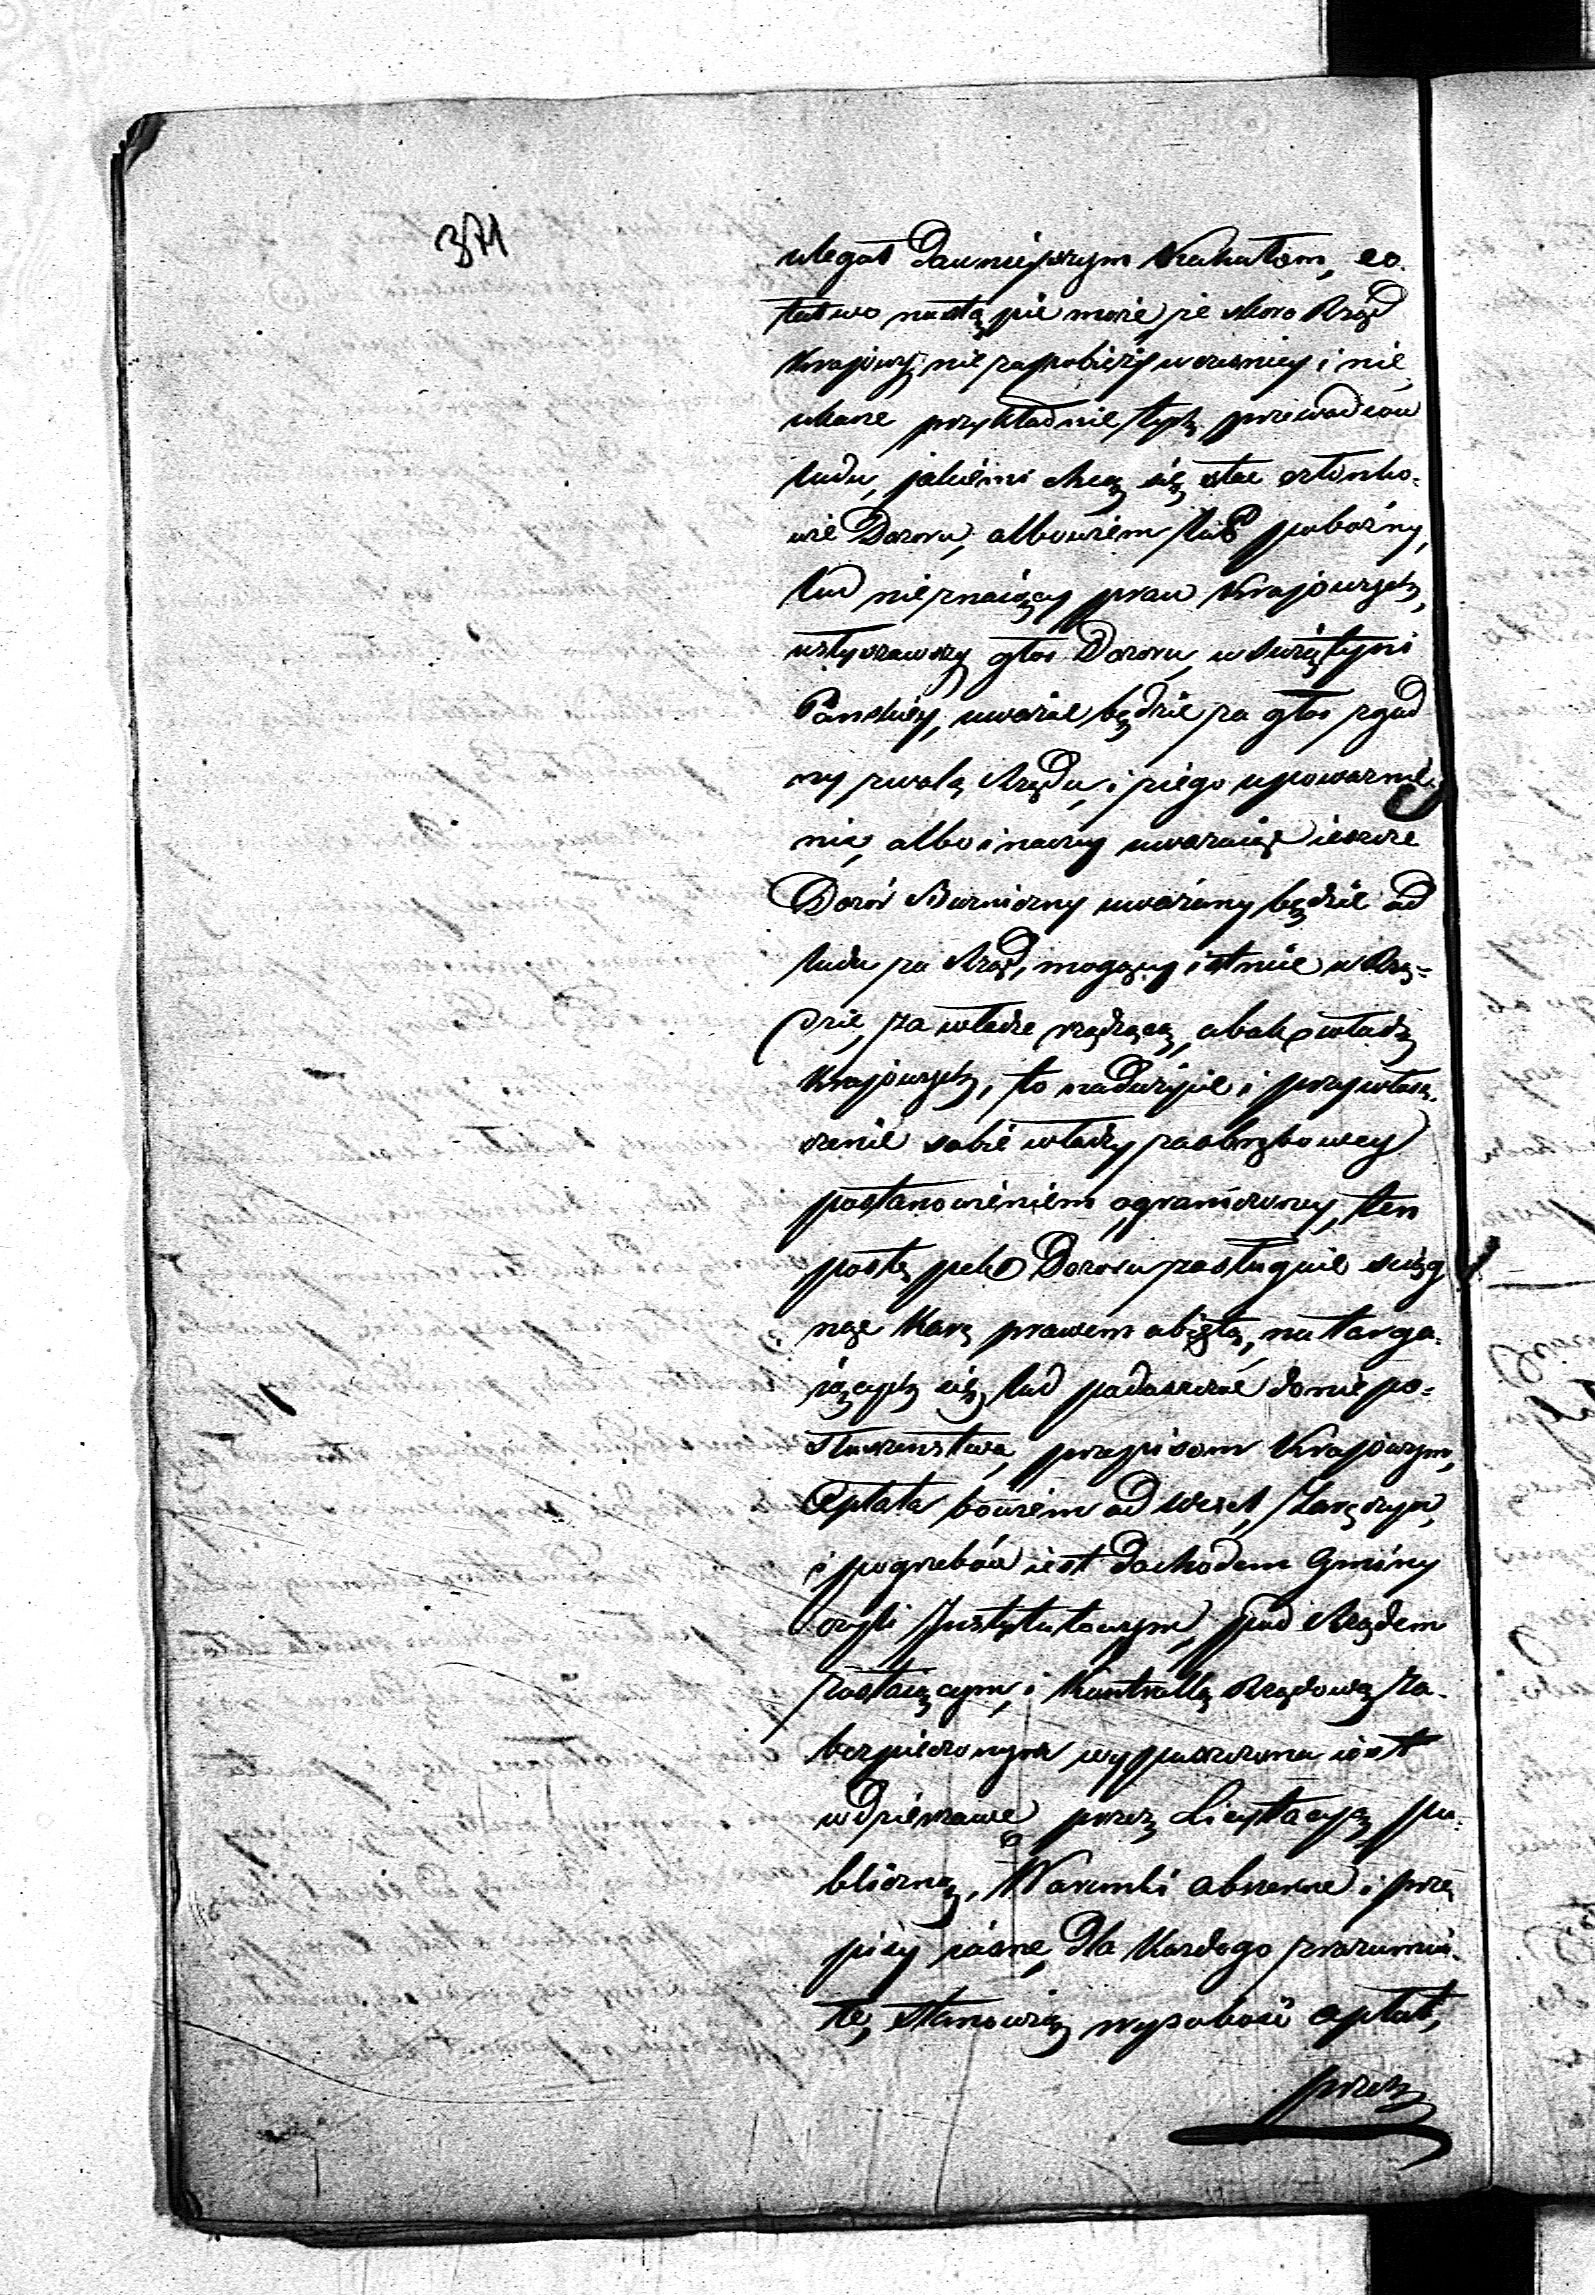 371
ulegał Dawnieyszym Kahałom, co
łatwo nastąpić może, że skoro Rząd
Krajowy nie zapobieży wczesniey i nie
ukaze przykładnie tych przewodców
ludu, jakiémi chcą się stać członko-
wie Dozoru, albowiem lud pobożny,
lud nieznaiący praw Krajowych,
usłyszawszy głos Dozoru w swiątyni
Pańskiéy, uważać będzie za głos zgod
ny z wolą Rządu, i z iego upoważnie-
nia, albo inaczey uważaiąc ieszcze
Dozór Bużniczny uważany będzie od
ludu za Rząd, mogący istnieć w Rzą-
dzie, za władze rządzącą, obok władz
Krajowych, to nadużycie i przywłasz-
czenie sobie władzy zaobrębowey
postanowieniem ograniczoney, ten
postępek Dozoru zasługuie sciąg
nąć Karę prawem obiętą, na targa-
iących się lud podaszczać do niepo-
słuszeństwa, przepisom Krajowym,
Opłata bowiem od wesel, Zaręczyn,
i pogrzebów iest dochodem Gminy
czyli Instytutowym, pod Rządem
zostaiącym, i Kontrollą Rządową za-
bezpieczonym wypuszczona iest
w dzierzawę przez Licytacyą pu-
bliczną, Warunki obszerne i prze
pisy iasne, dla Kazdego zrozumia-
łe, stanowią wysokość opłat,
przez